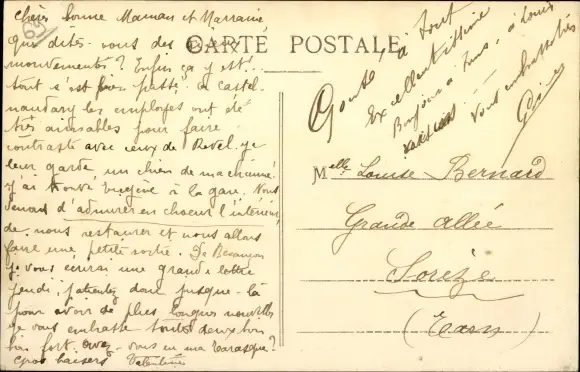 Chère bonne Maman et Marraine
Que dites-vous des
mouvements ? Enfin ça y est !
tout s'est bien passé. à Castel-
naudary les employés ont été
très aimables pour faire
contraste avec ceux de Revel. je
leur garde un chien de ma chienne.
j'ai trouvé Eugène à la gare. Nous
venons d'admirer en choeur l'intérieur
de nous restaurer et nous allons
faire une petite sortie. De Besançon
je vous écrirai une grande lettre
jeudi. patientez donc jusque-là
pour avoir de plus longues nouvelles
je vous embrasse toutes deux bien
bien fort. avez-vous eu ma Tarasque ?
gros baisers Valentine
CARTE POSTALE
Gouté, à tout
Excellentissime
Bonjour à tous, à Louise
Vous embrasse
Melle Louise Bernard
Grande allée
Sorèze
(Tarn)